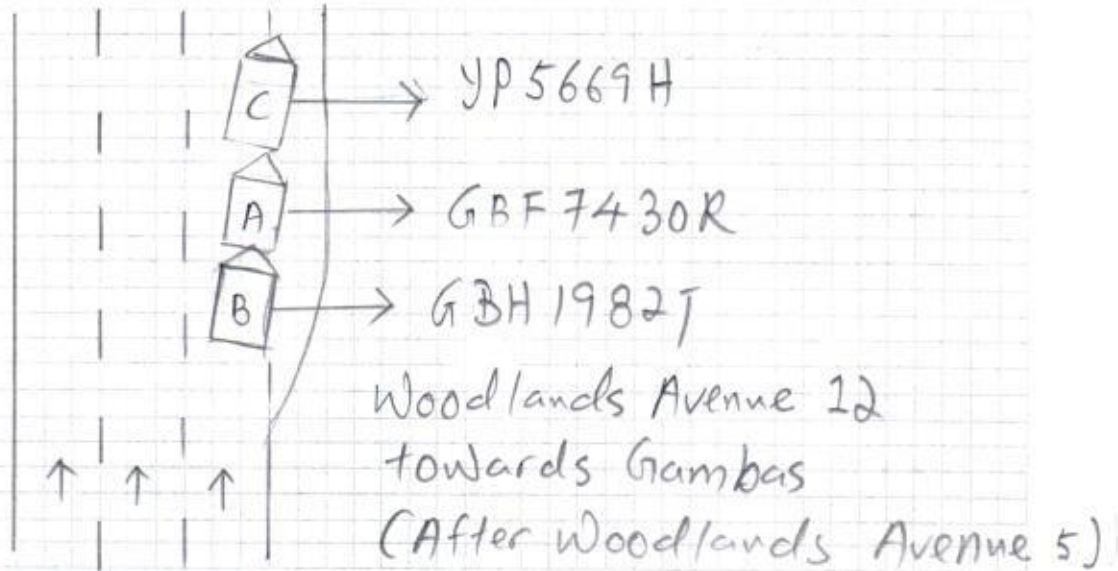 C YP5669H
A GBF7430R
B GBH1982T
Woodlands Avenue 12
towards Gambas
(After Woodlands Avenue 5)